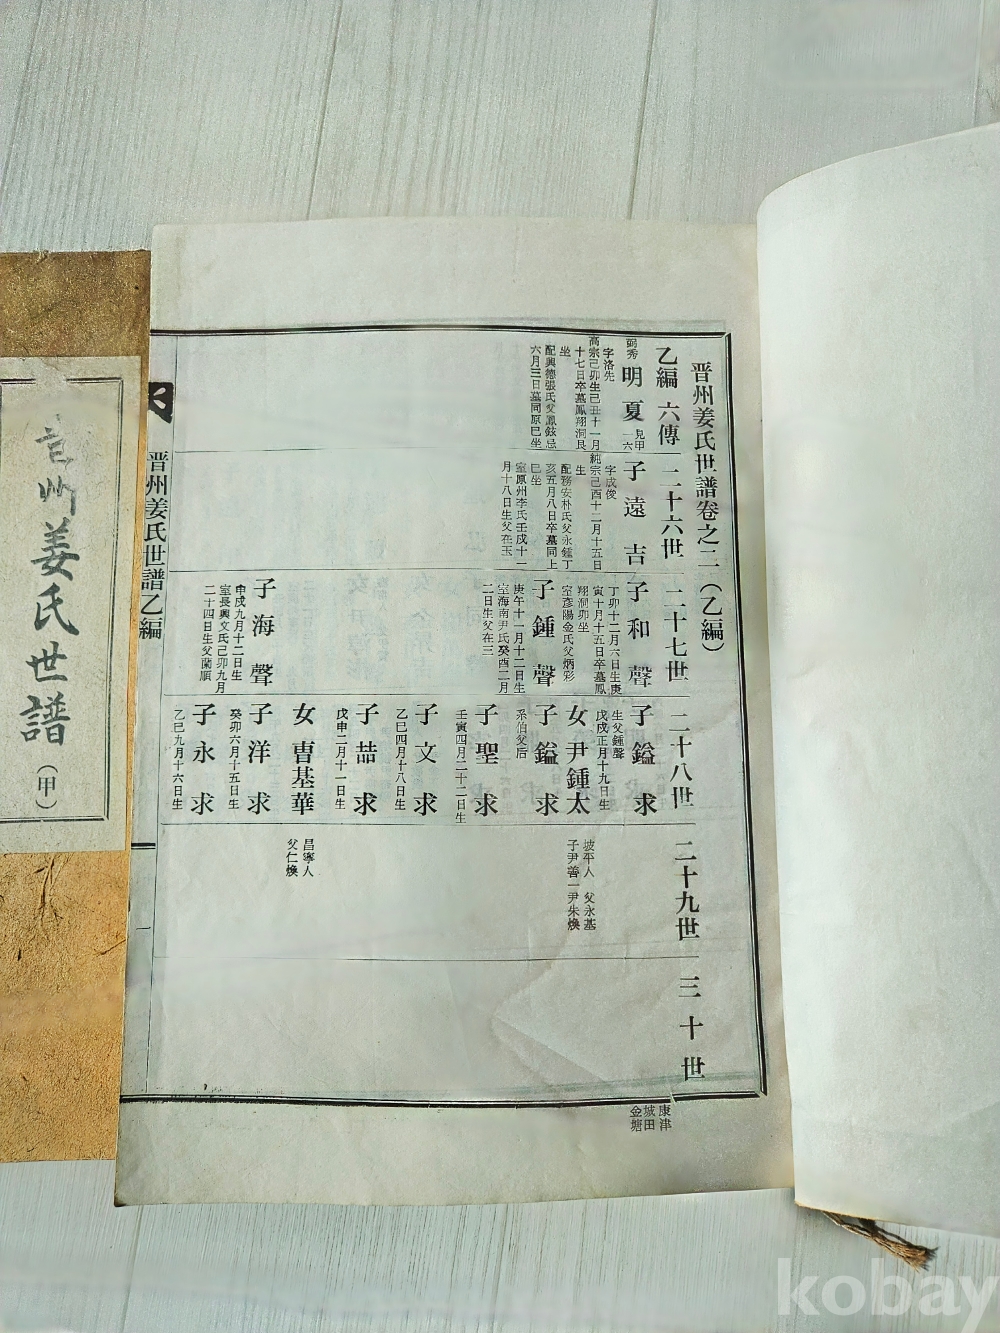 晋州姜氏世譜卷之二（乙編）
乙編 六傳 二十六世 二十七世 二十八世 二十九世 三十世
弼秀
明夏
見甲
一六
字洛先
高宗己卯生己丑十一月
十七日卒墓鳳翔洞艮
坐
配興德張氏父鳳鉉忌
六月三日墓同原巳坐
子遠吉
字成俊
純宗己酉十二月十五日
生
配務安朴氏父永鍾丁
亥五月八日卒墓同上
巳坐
室原州李氏壬戌十一
月十八日生父在玉
子和聲
丁卯十二月六日生庚
寅十月十五日卒墓鳳
翔洞卯坐
室彦陽金氏父炳彩
子鍾聲
庚午十一月十二日生
室海南尹氏癸酉二月
二日生父在三
子海聲
申戌九月十二日生
室長興文氏己卯九月
二十四日生父蘭順
子鎰求
生父鍾聲
戊戌正月十九日生
女尹鍾太
坡平人 父永基
子尹善一尹朱煥
子鎰求
系伯父后
子聖求
壬寅四月二十二日生
子文求
乙巳四月十八日生
子喆求
戊申二月十一日生
女曺基華
昌寧人
父仁煥
子洋求
癸卯六月十五日生
子永求
乙巳九月十六日生
康津
城田
金塘
晋州姜氏世譜乙編
一
州姜氏世譜（甲）
kobay